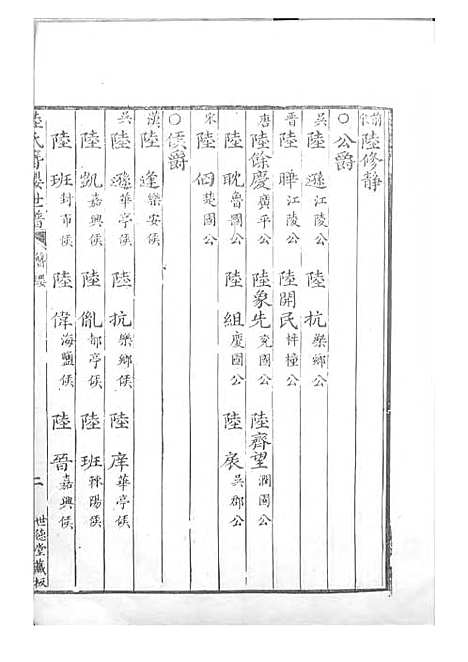 陸修静
○公爵
吳 陸遜江陵公 陸抗樂鄉公
晋 陸曄江陵公 陸開民
唐 陸餘慶廣平公 陸象先兖國公 陸齊望
陸耽魯國公 陸組慶國公 陸展吳郡公
宋 陸佃楚國公
○侯爵
漢 陸逢樂安侯
吳 陸遜華亭侯 陸抗樂鄉侯 陸庠華亭侯
陸凱嘉興侯 陸胤都亭侯 陸班
陸班封市侯 陸偉海鹽侯 陸晉嘉興侯
陸氏 世譜 二 世德堂藏板